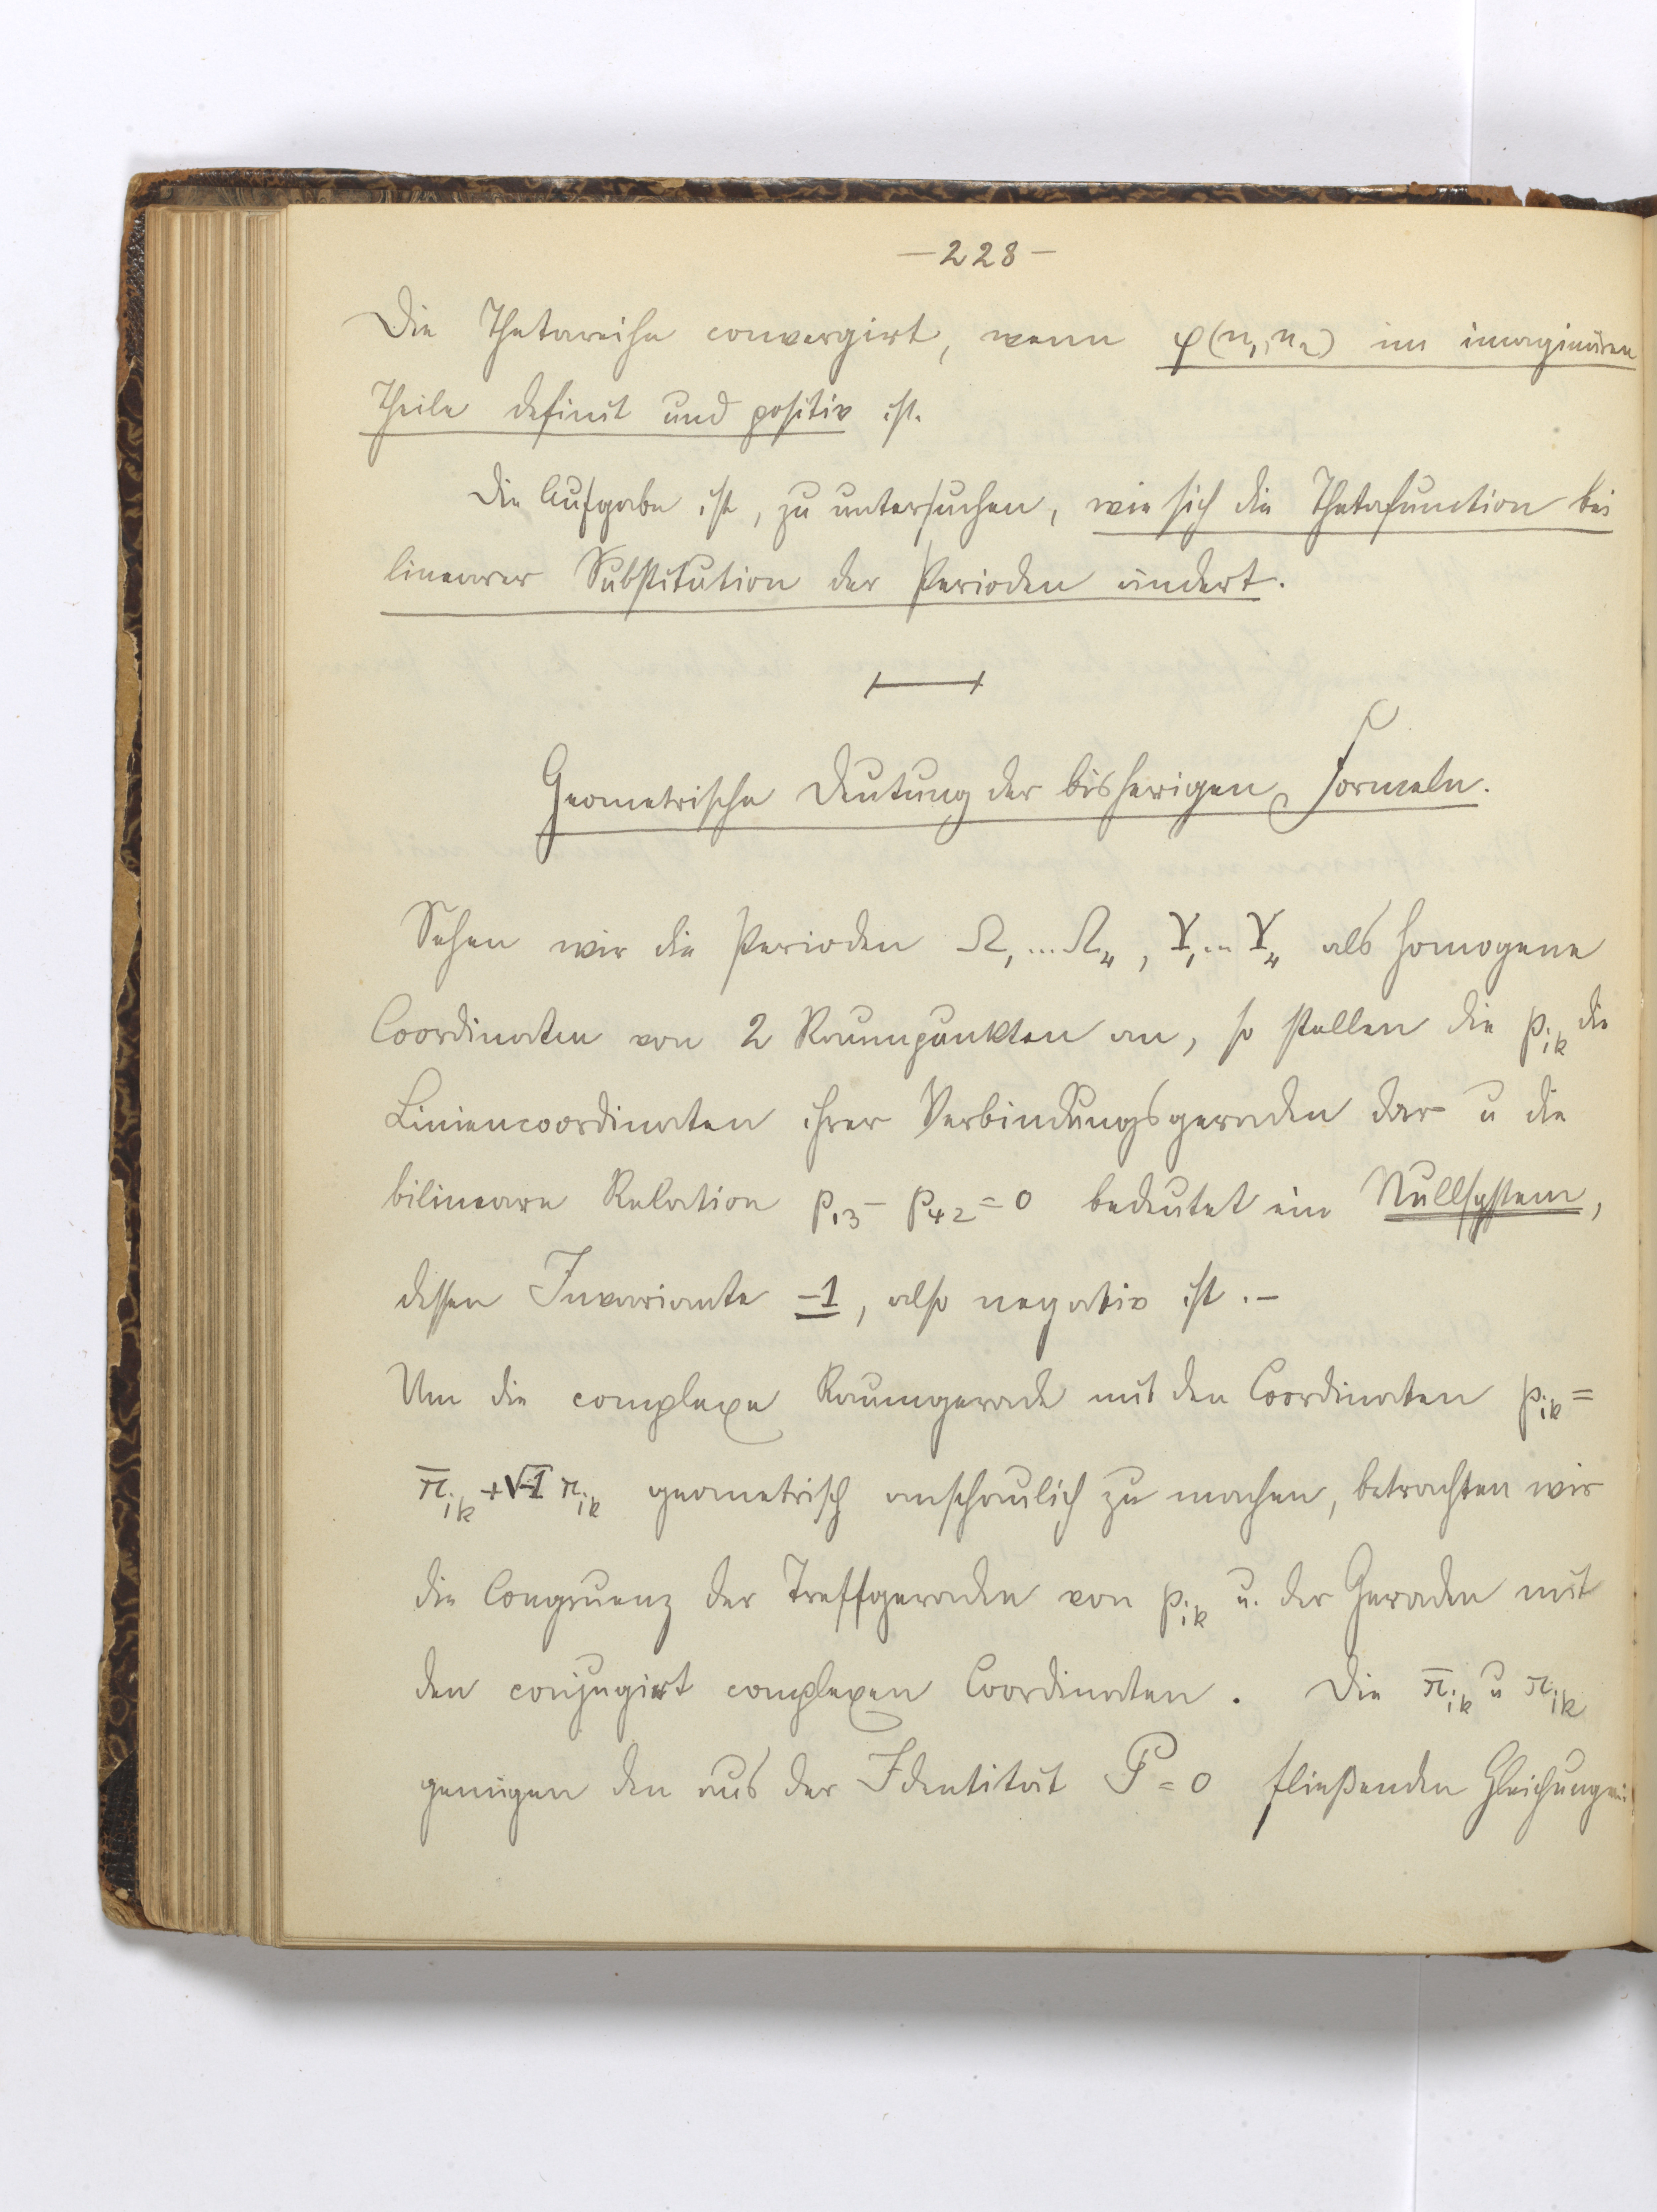 —228—
Die Thetareihe convergirt, wenn φ(n₁,n₂) im imaginären
Theile definit und positiv ist.
Die Aufgabe ist, zu untersuchen, wie sich die Thetafunction bei
linearer Substitution der Perioden ändert.
Geometrische Deutung der bisherigen Formeln.
Sehen wir die Perioden Ω₁...Ω₄, Υ₁...Υ₄ als homogene
Coordinaten von 2 Raumpunkten an, so stellen die p_{ik} die
Liniencoordinaten ihrer Verbindungsgeraden dar u die
bilineare Relation p₁₃ - p₄₂ = 0 bedeutet ein Nullsystem,
dessen Invariante -1, also negativ ist. –
Um die complexe Raumgerade mit den Coordinaten p_{ik} =
π̄_{ik} + √-1 π_{ik} geometrisch anschaulich zu machen, betrachten wir
die Congruenz der Treffgeraden von p_{ik} u. der Geraden mit
den conjugirt complexen Coordinaten. Die π̄_{ik} u π_{ik}
genügen den aus der Identität P = 0 fließenden Gleichungen: